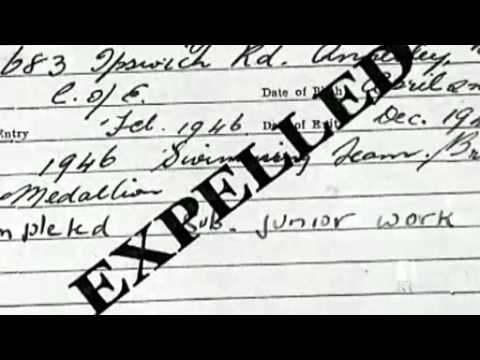 683 Ipswich Rd. Annerley,
C. of E. Date of Birth
Entry Feb. 1946 Date of Exit Dec. 194
1946 Swimming Team. /Br
Medallion
mpleted Sub. junior work
EXPELLED